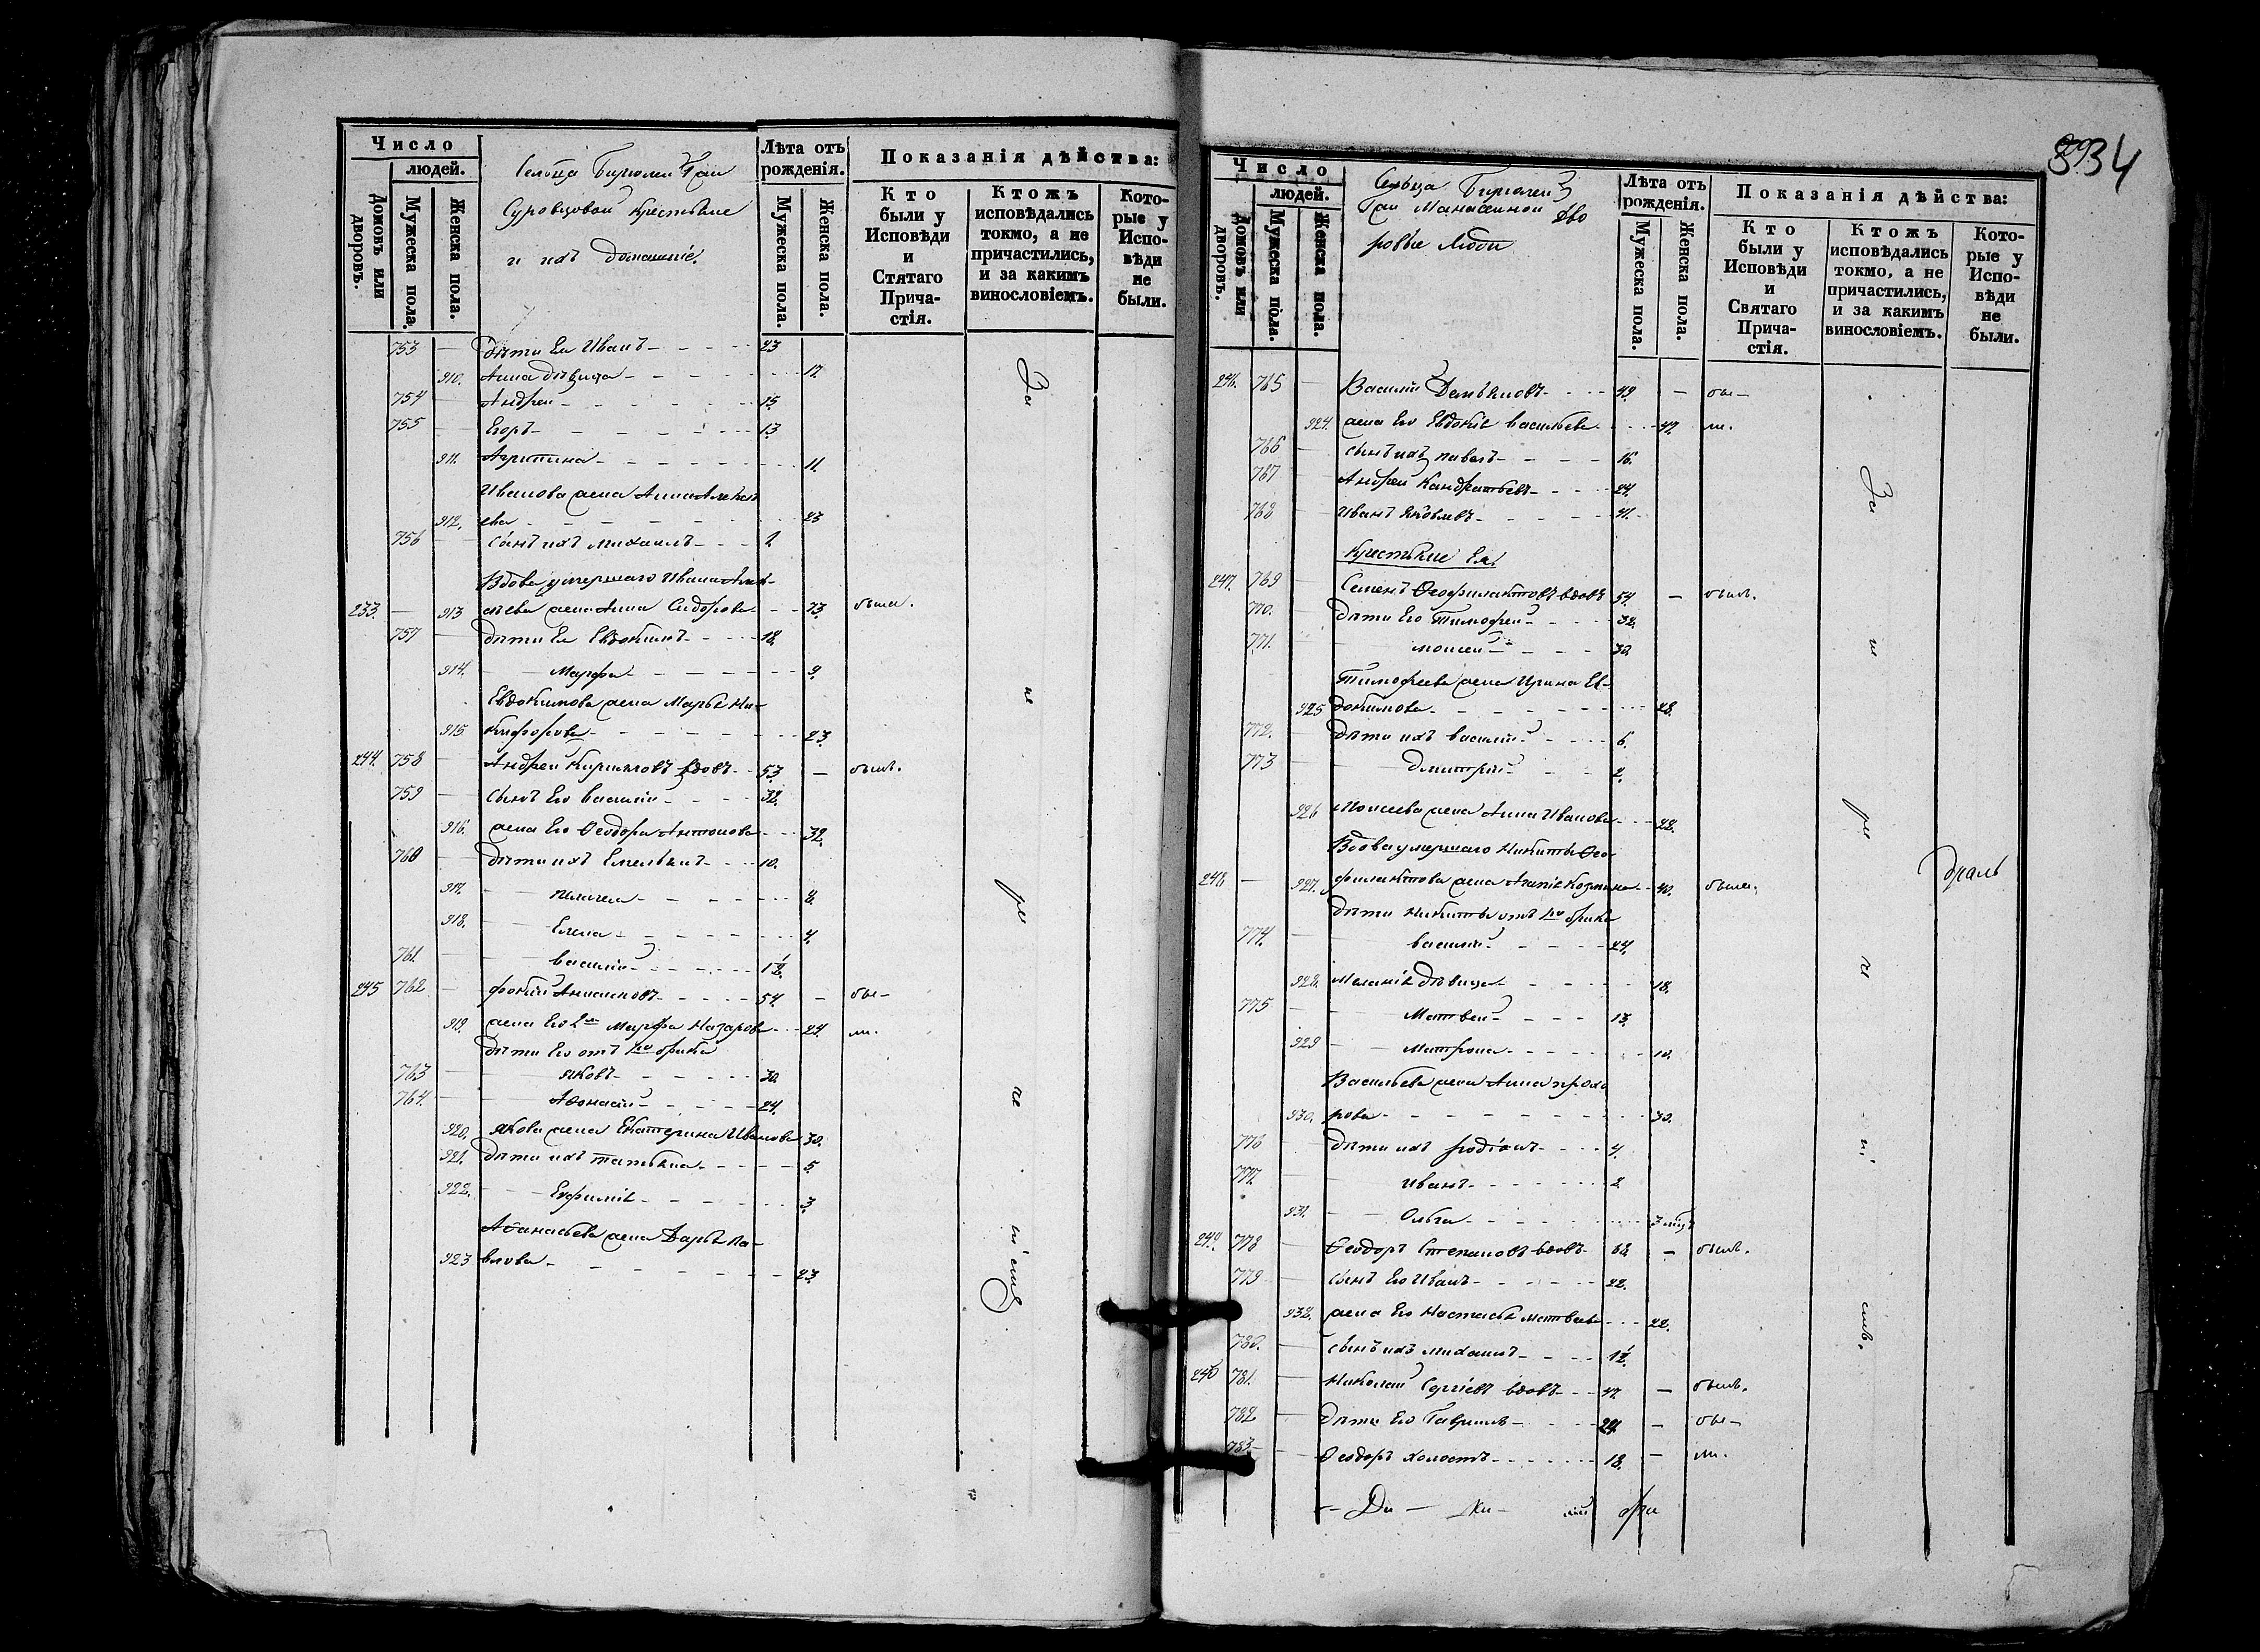 Число
людей.
Домовъ или дворовъ.
Мужеска пола.
Женска пола.
Сельца Гжи
Суровцовой Крестьяне
и ихъ домашніе.
Лѣта отъ рожденія.
Мужеска пола.
Женска пола.
Показанія дѣйства:
Кто были у Исповѣди и Стятаго Прича-стія.
Ктожъ исповѣдались токмо, а не причастились, и за какимъ винословіемъ.
Кото-рые у Испо-вѣди не были.
753 — дѣти Ея Иванъ 23
910. Анна дѣвица 17.
754 — Андрей 15.
755 — Егоръ 13
911. Агрипина 11.
Иванова жена Анна Алексѣ
912. ева 23
756 — Сынъ ихъ Михаилъ
Вдова умершаго Ивана
233. — 913 жена Анна Сидорова 73. была.
757 — дѣти Ея Евдокимъ 18.
914. Марфа 9.
Евдокимова жена Марья Ни-
915 кифорова 23.
244. 758 — Андрей Кириловъ вдовъ 53. — былъ.
759 — Сынъ Его Василій 32.
916. жена Его Ѳеодора Антонова 32.
760 — дѣти ихъ Емельянъ 10.
917. Пелагея 8.
918. Елена 4.
761. Василій 1½.
245 762 — Фокій 54. — бы-
919. жена Его 2я Марфа Назарова 24. ли.
дѣти Его отъ 1го брака
763 — Яковъ 30.
764. — Аѳонасій 24.
920. Якова жена Екатерина Иванова 30.
921. дѣти ихъ Татьяна 5.
922. Евфимія 3.
Аѳанасьева жена Дарья Па-
923 влова 23.
За не ре че ні емъ
834
Число
людей.
Домовъ или дворовъ.
Мужеска пола.
Женска пола.
Сельца
Гжи Манасеиной Дво
ровые Люди
Лѣта отъ рожденія.
Мужеска пола.
Женска пола.
Показанія дѣйства:
Кто были у Исповѣди и Святаго Прича-стія.
Ктожъ исповѣдались токмо, а не причастились, и за какимъ винословіемъ.
Кото-рые у Испо-вѣди не были.
246. 765 — Василій Демьяновъ 49. — бы-
924. жена Его Евдокія Васильева 47. ли.
766 — Сынъ ихъ Павелъ 16.
767 — Андрей Кандратьевъ 24.
768 — Иванъ Яковлевъ 41.
Крестьяне Ея.
247. 769 — Семенъ Ѳеофилактовъ вдовъ 54. — былъ.
770. — дѣти Его Тимофей 32.
771. — Моисей 30.
Тимофеева жена Ирина Ев-
925 докимова 28.
772. — дѣти ихъ Василій 6.
773 Дмитрій 2.
926 Моисеева жена Анна Иванова 22.
Вдова умершаго Никиты Ѳео-
248. — 927. филактова жена Агапія Козмина 40. была.
дѣти Никиты отъ 1го брака
774. — Василій 24.
928. Меланія дѣвица 18.
775 — Матвей 13.
929 Матрона 10.
Васильева жена Анна Прохо
930. рова 30.
776 — дѣти ихъ Родіонъ 4.
777. — Иванъ 2.
931. Ольга
249. 778 — Ѳеодоръ Степановъ вдовъ — былъ.
779 — Сынъ Его Иванъ 22.
932. жена Его Настасья Матвеева 22.
780. — Сынъ ихъ Михаилъ 1½.
781. — Николай Сергіевъ вдовъ 47. — былъ.
782 — дѣти Его Гаврилъ 24 — бы-
783 — Ѳеодоръ холостъ 18. — ли.
За не ре че ні емъ.